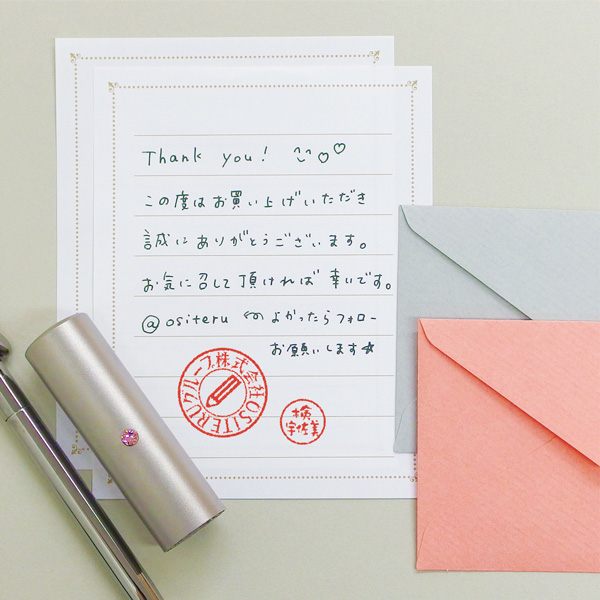 Thank you! ^^♡♡
この度はお買い上げいただき
誠にありがとうございます。
お気に召して頂ければ幸いです。
@ositeru よかったらフォロー
お願いします☆
OSITERUグループ株式会社
検
宇佐美